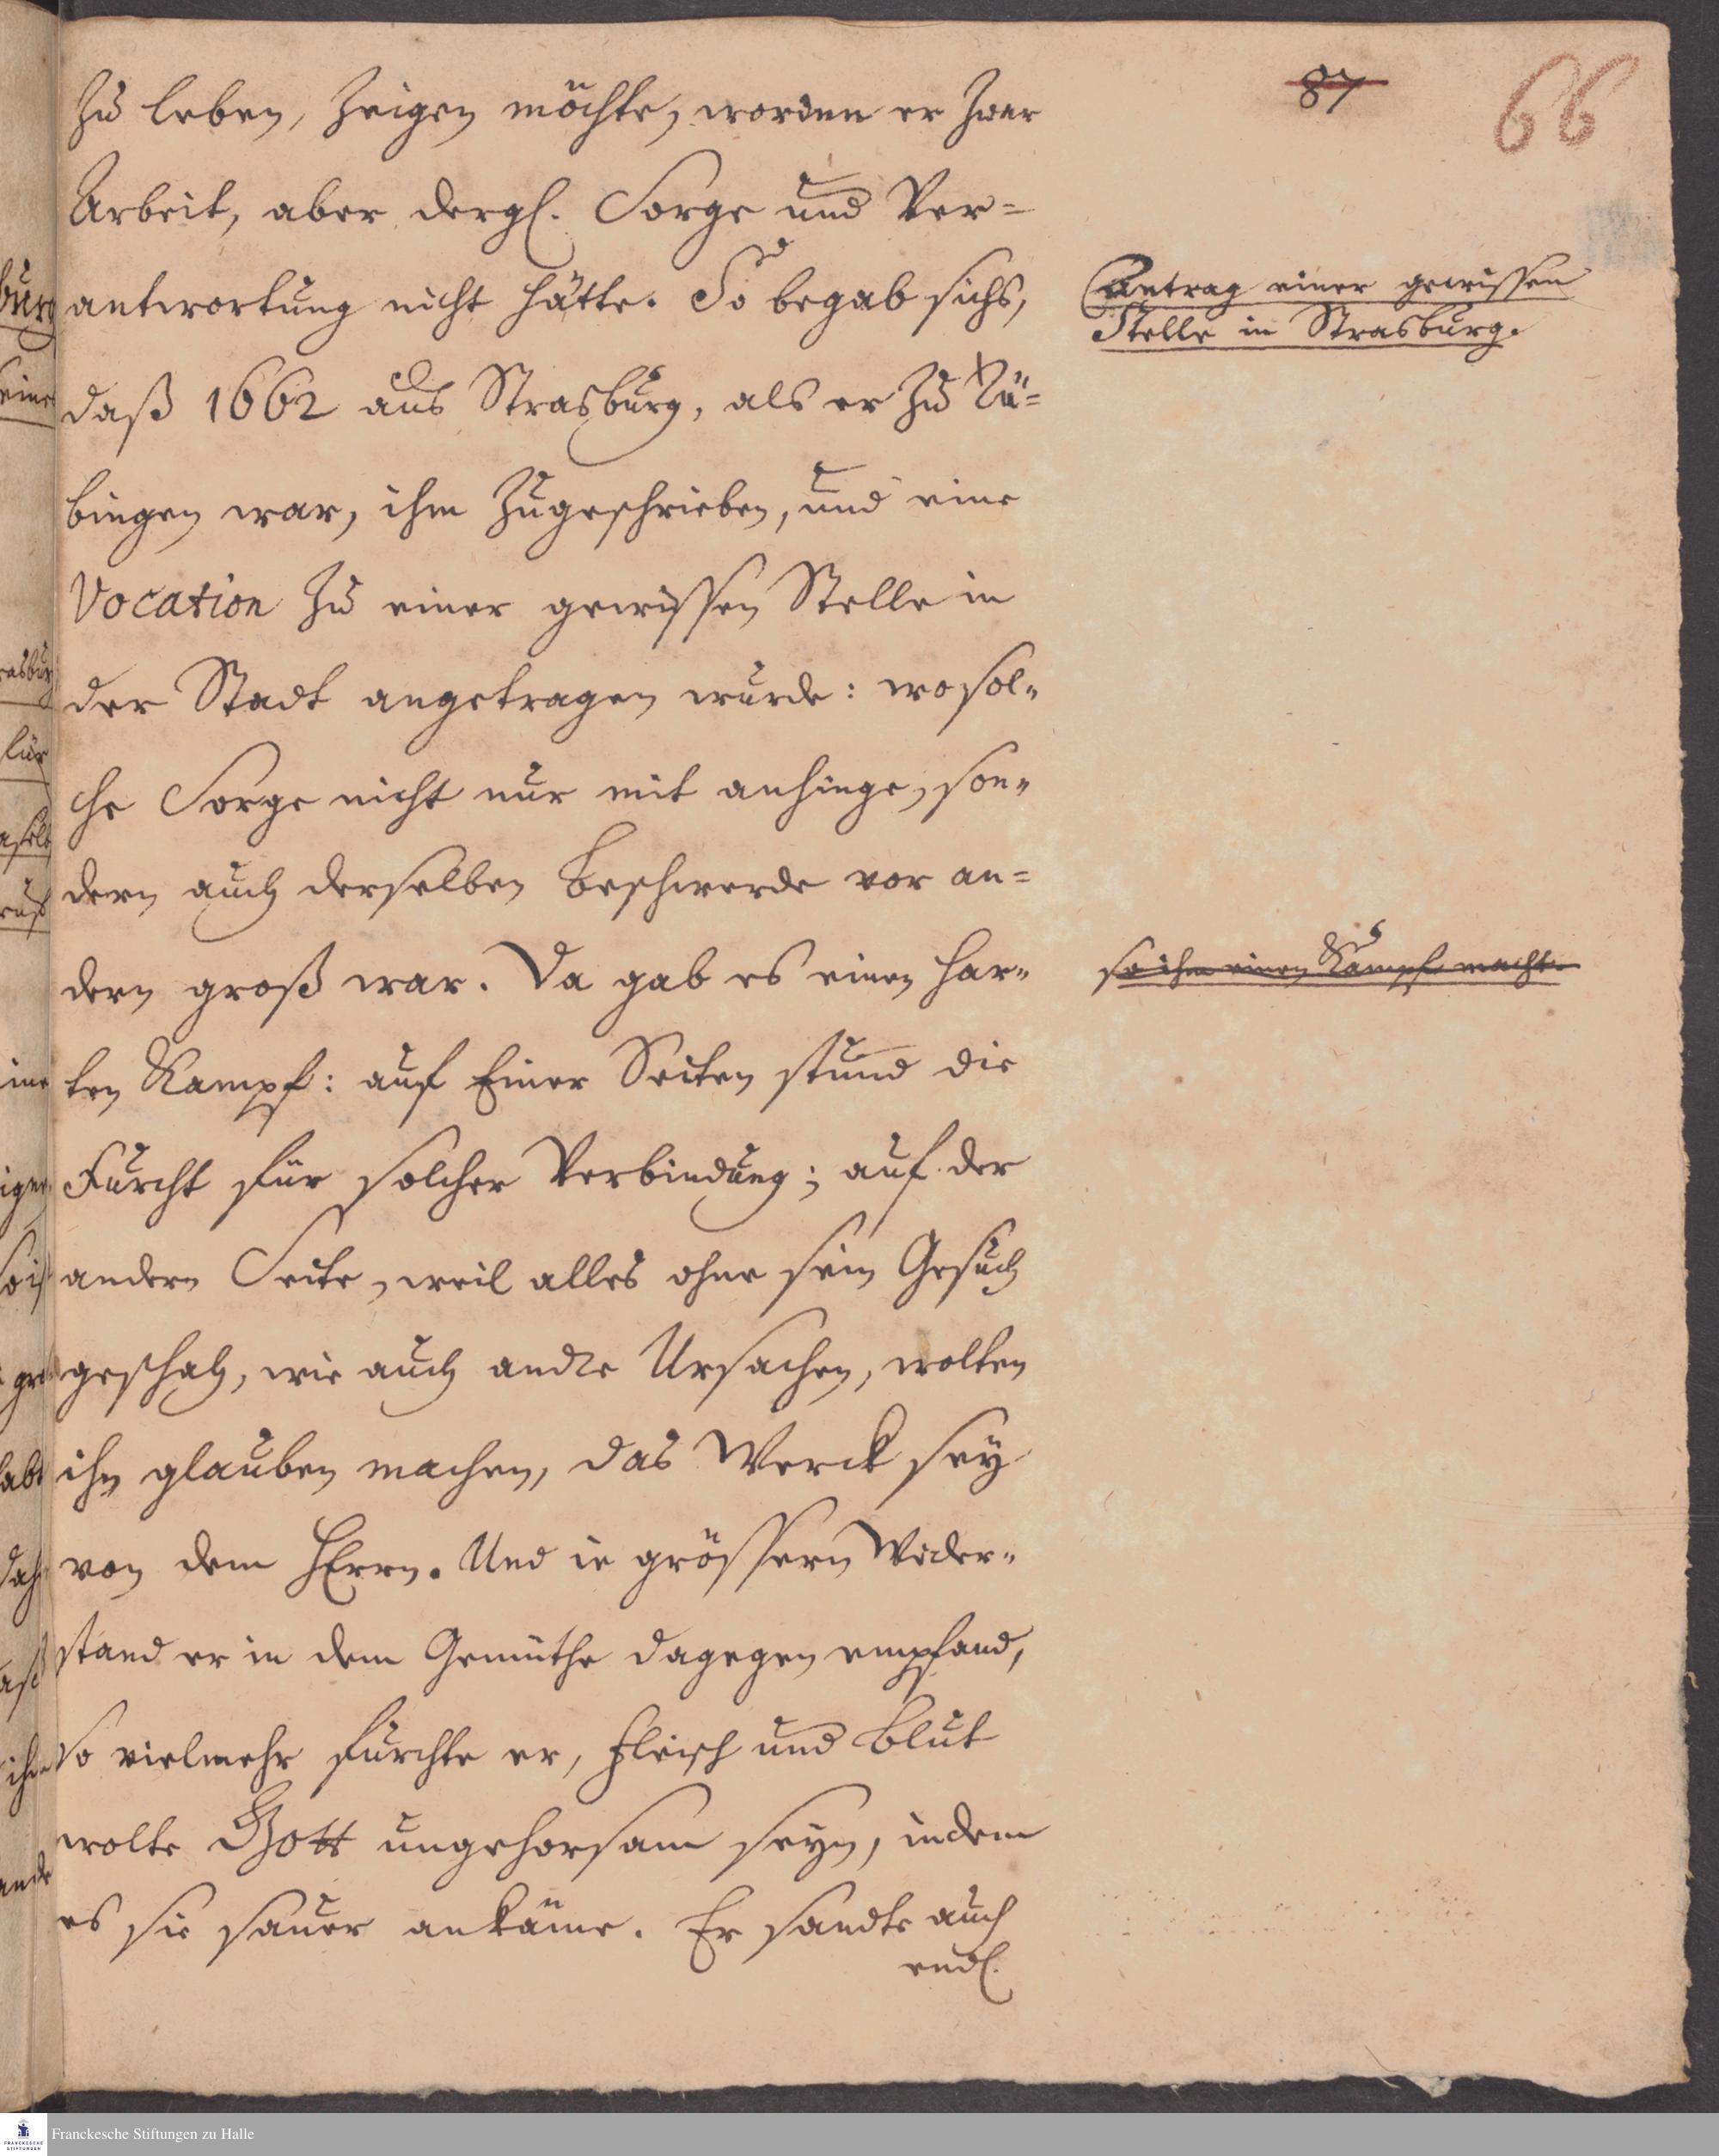 87
66
zu leben, zeigen möchte, worinn er zwar
Arbeit, aber dergl. Sorge und Ver=
antwortung nicht hätte. So begab sichs,
daß 1662 aus Strasburg, als er zu Tü=
bingen war, ihm zugeschrieben, und eine
Vocation zu einer gewissen Stelle in
der Stadt angetragen wurde: wo sol=
che Sorge nicht nur mit anhinge, son=
dern auch derselben Beschwerde vor an=
dern groß war. Da gab es einen har=
ten Kampf: auf Einer Seiten stund die
Furcht für solcher Verbindung; auf der
andern Seite, weil alles ohne sein Gesuch
geschah, wie auch andre Ursachen, wolten
ihn glauben machen, das Werck sey
von dem HErrn. Und ie grössern Wider=
stand er in dem Gemüthe dagegen empfand,
so vielmehr furchte er, Fleisch und Blut
wolte Gott ungehorsam seyn, indem
es sie sauer ankäme. Er sandte auch
endl.
Antrag einer gewissen
Stelle in Strasburg.
so ihm einen Kampf macht.
Franckesche Stiftungen zu Halle